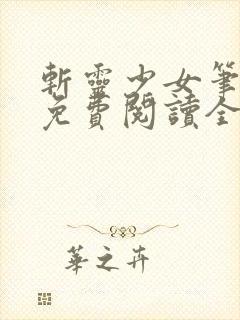 斬靈少女筆
免費閱讀全
華之卉